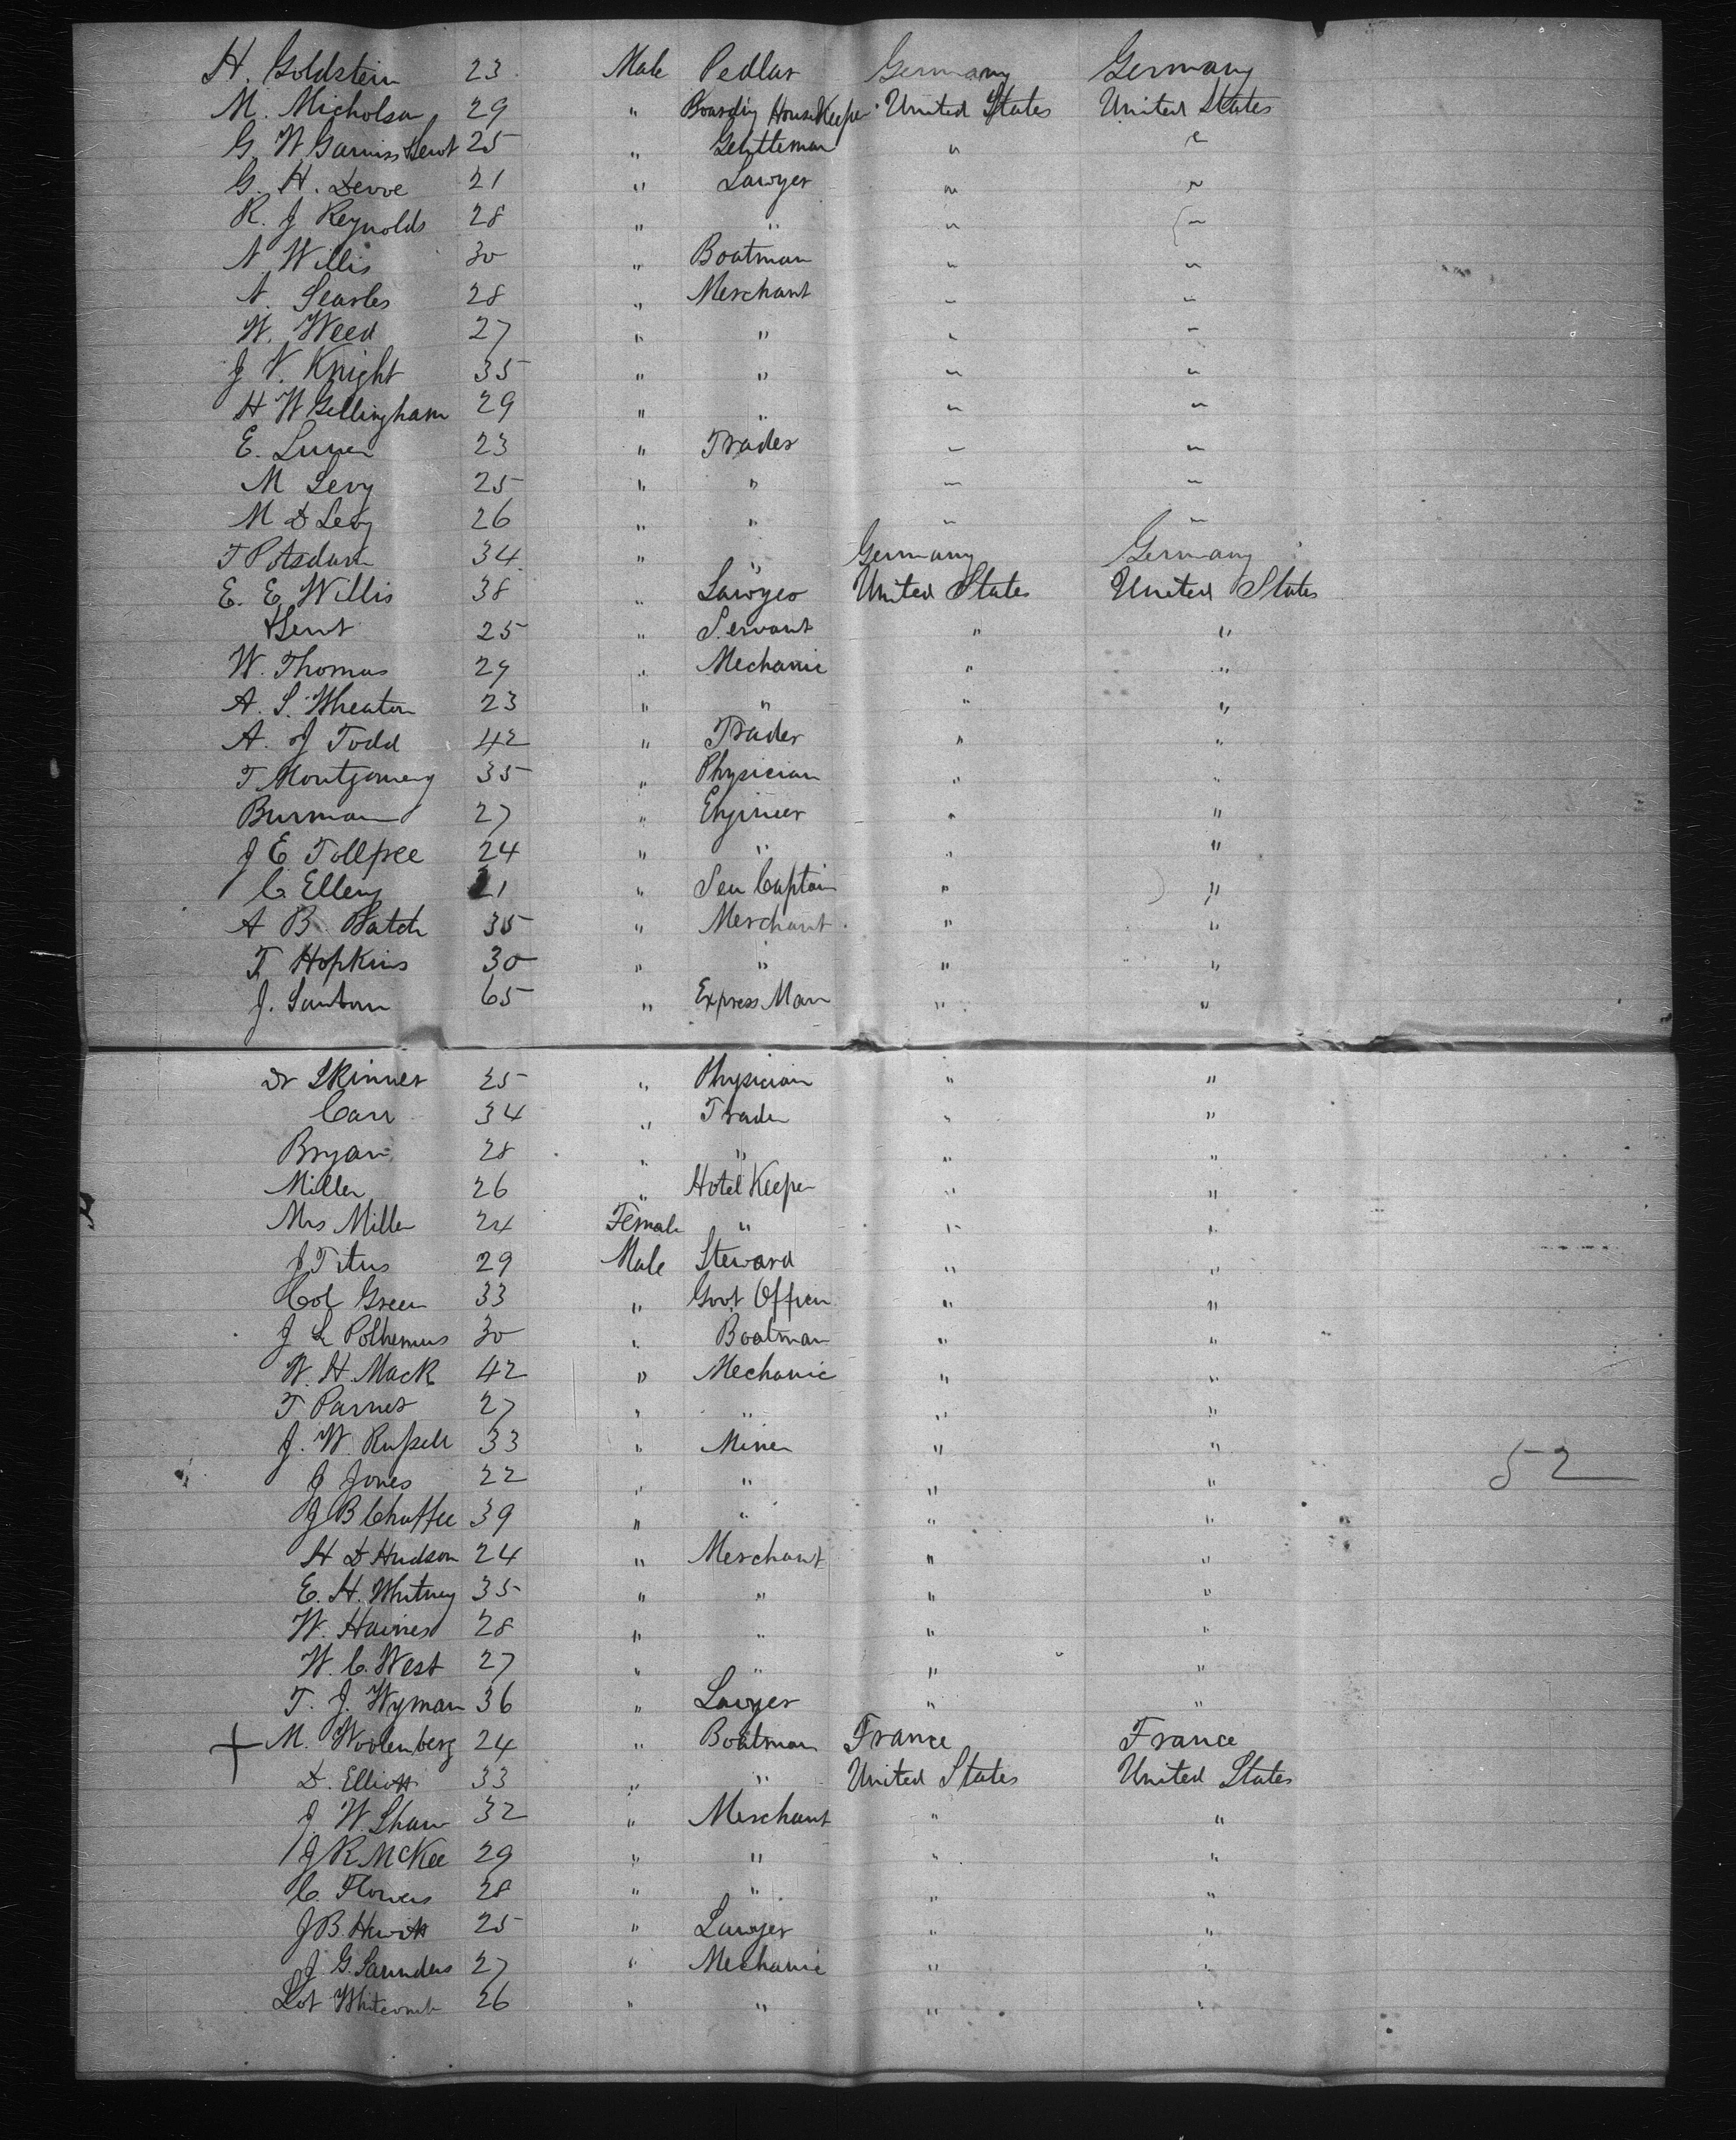 H. Goldstein 23 Male Pedlar Germany Germany
M. Micholson 29 " Boarding House Keeper United States United States
G. W. Garniss & Servt 25 " Gentleman " "
G. H. Devoe 21 " Lawyer " "
R. J Reynolds 28 " " " "
N. Willis 30 " Boatman " "
N. Searles 28 " Merchant " "
W. Weed 27 " " " "
J V. Knight 35 " " " "
H W Gellingham 29 " " " "
E. 23 " Trader " "
M Levy 25 " " " "
M D Levy 26 " " " "
T Potsdam 34 " " Germany Germany
E. E. Willis 38 " Lawyer United States United States
& Servt 25 " Servant " "
W. Thomas 29 " Mechanic " "
A. S. Wheaton 23 " " " "
A. J Todd 42 " Trader " "
T Montgomery 35 " Physician " "
Burman 27 " Engineer " "
J E Tollfree 24 " " " "
C Ellery 21 " Sea Captain " "
A B Hatch 35 " Merchant " "
T. Hopkins 30 " " " "
J. Sanborn 65 " Express Man " "
Dr Skinner 25 " Physician " "
Carr 34 " Trader " "
Bryan 28 " " " "
Miller 26 " Hotel Keeper " "
Mrs Miller 24 Female " " "
J Titus 29 Male Steward " "
Col Green 33 " Govt Officer " "
J L Polhemus 30 " Boatman " "
W. H. Mack 42 " Mechanic " "
T Parnes 27 " " " "
J. W. Russell 33 " Miner " "
J Jones 22 " " " "
J B Chaffee 39 " " " "
H D Hudson 24 " Merchant " "
E. H. Whitney 35 " " " "
W. Haines 28 " " " "
W. C. West 27 " " " "
T. J. Wyman 36 " Lawyer " "
+ M. Woolenberg 24 " Boatman France France
D. Elliott 33 " " United States United States
J. W. Shaw 32 " Merchant " "
J R McKee 29 " " " "
C. Flowers 28 " " " "
J B. Hewitt 25 " Lawyer " "
J. G. Saunders 27 " Mechanic " "
Lot Whitcomb 26 " " " "
52